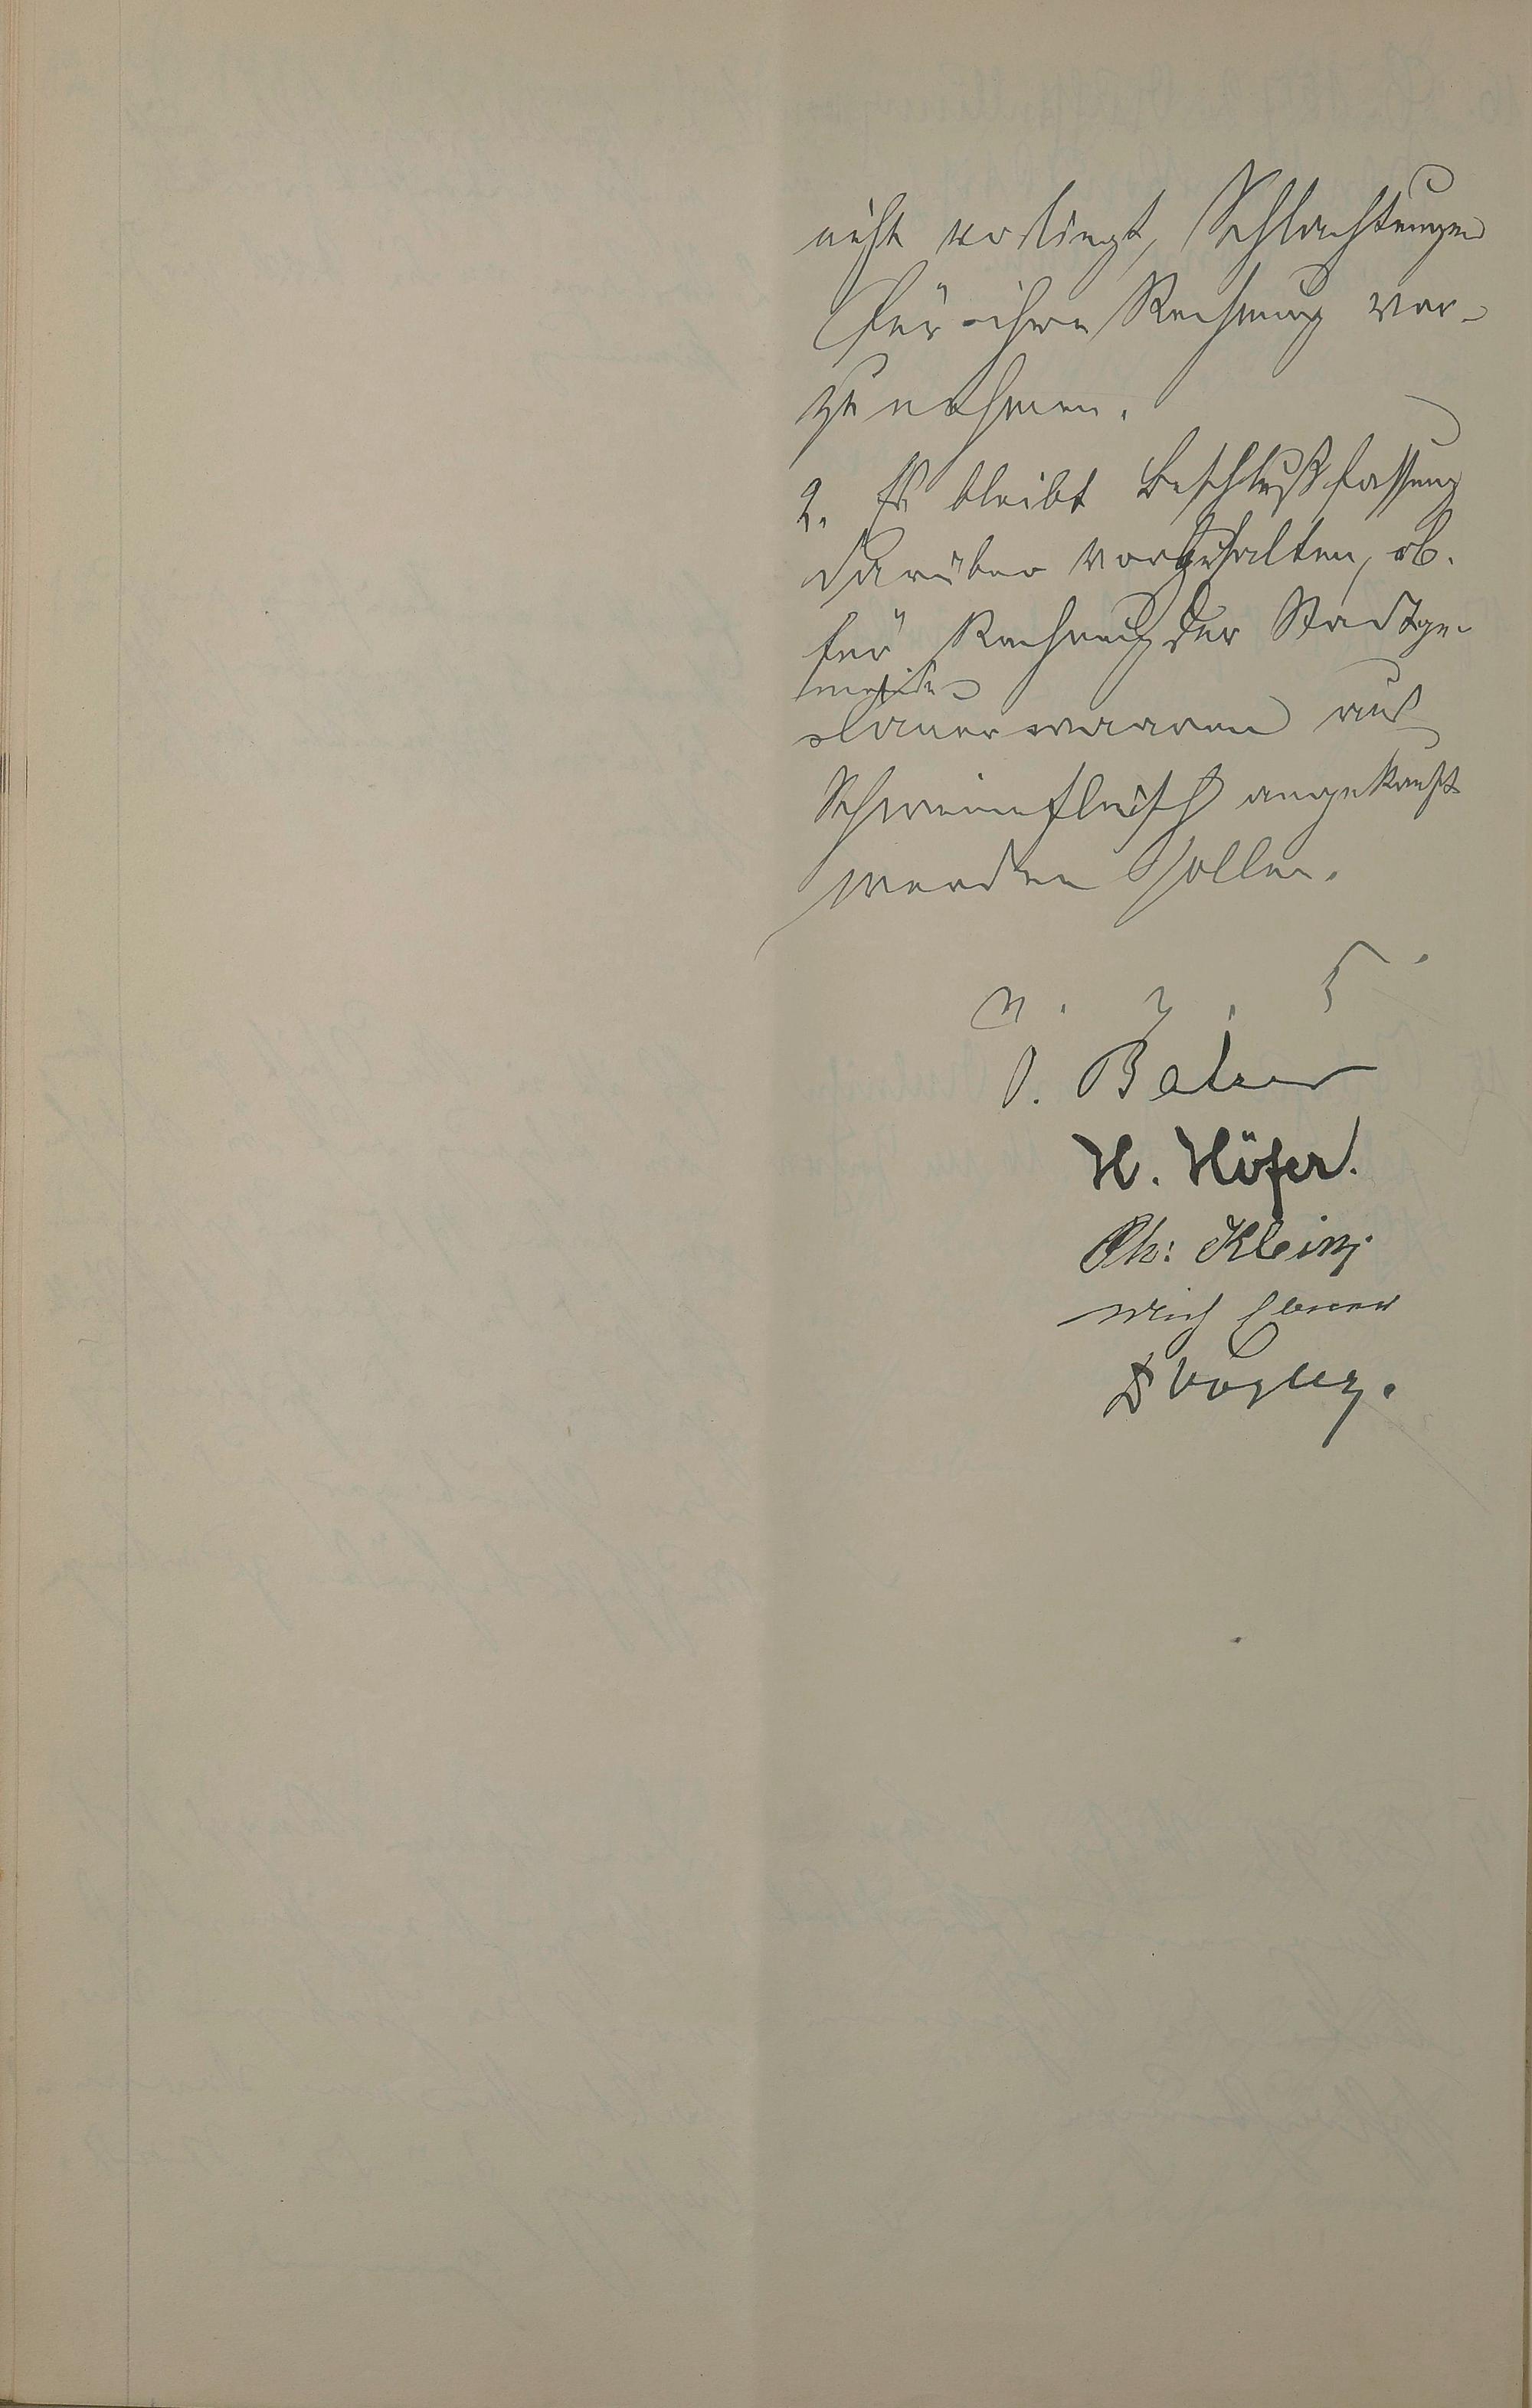 nicht vorliegt, Schlachtungen
für ihre Rechnung vor-
zunehmen.
2. Es bleibt Beschlußfassung
darüber vorbehalten, ob
für Rechnung der Stadtge-
meinde
Dauerwaaren aus
Schweinefleisch angekauft
werden sollen.
v. g. u.
H. Höfer.
Ph: Klein